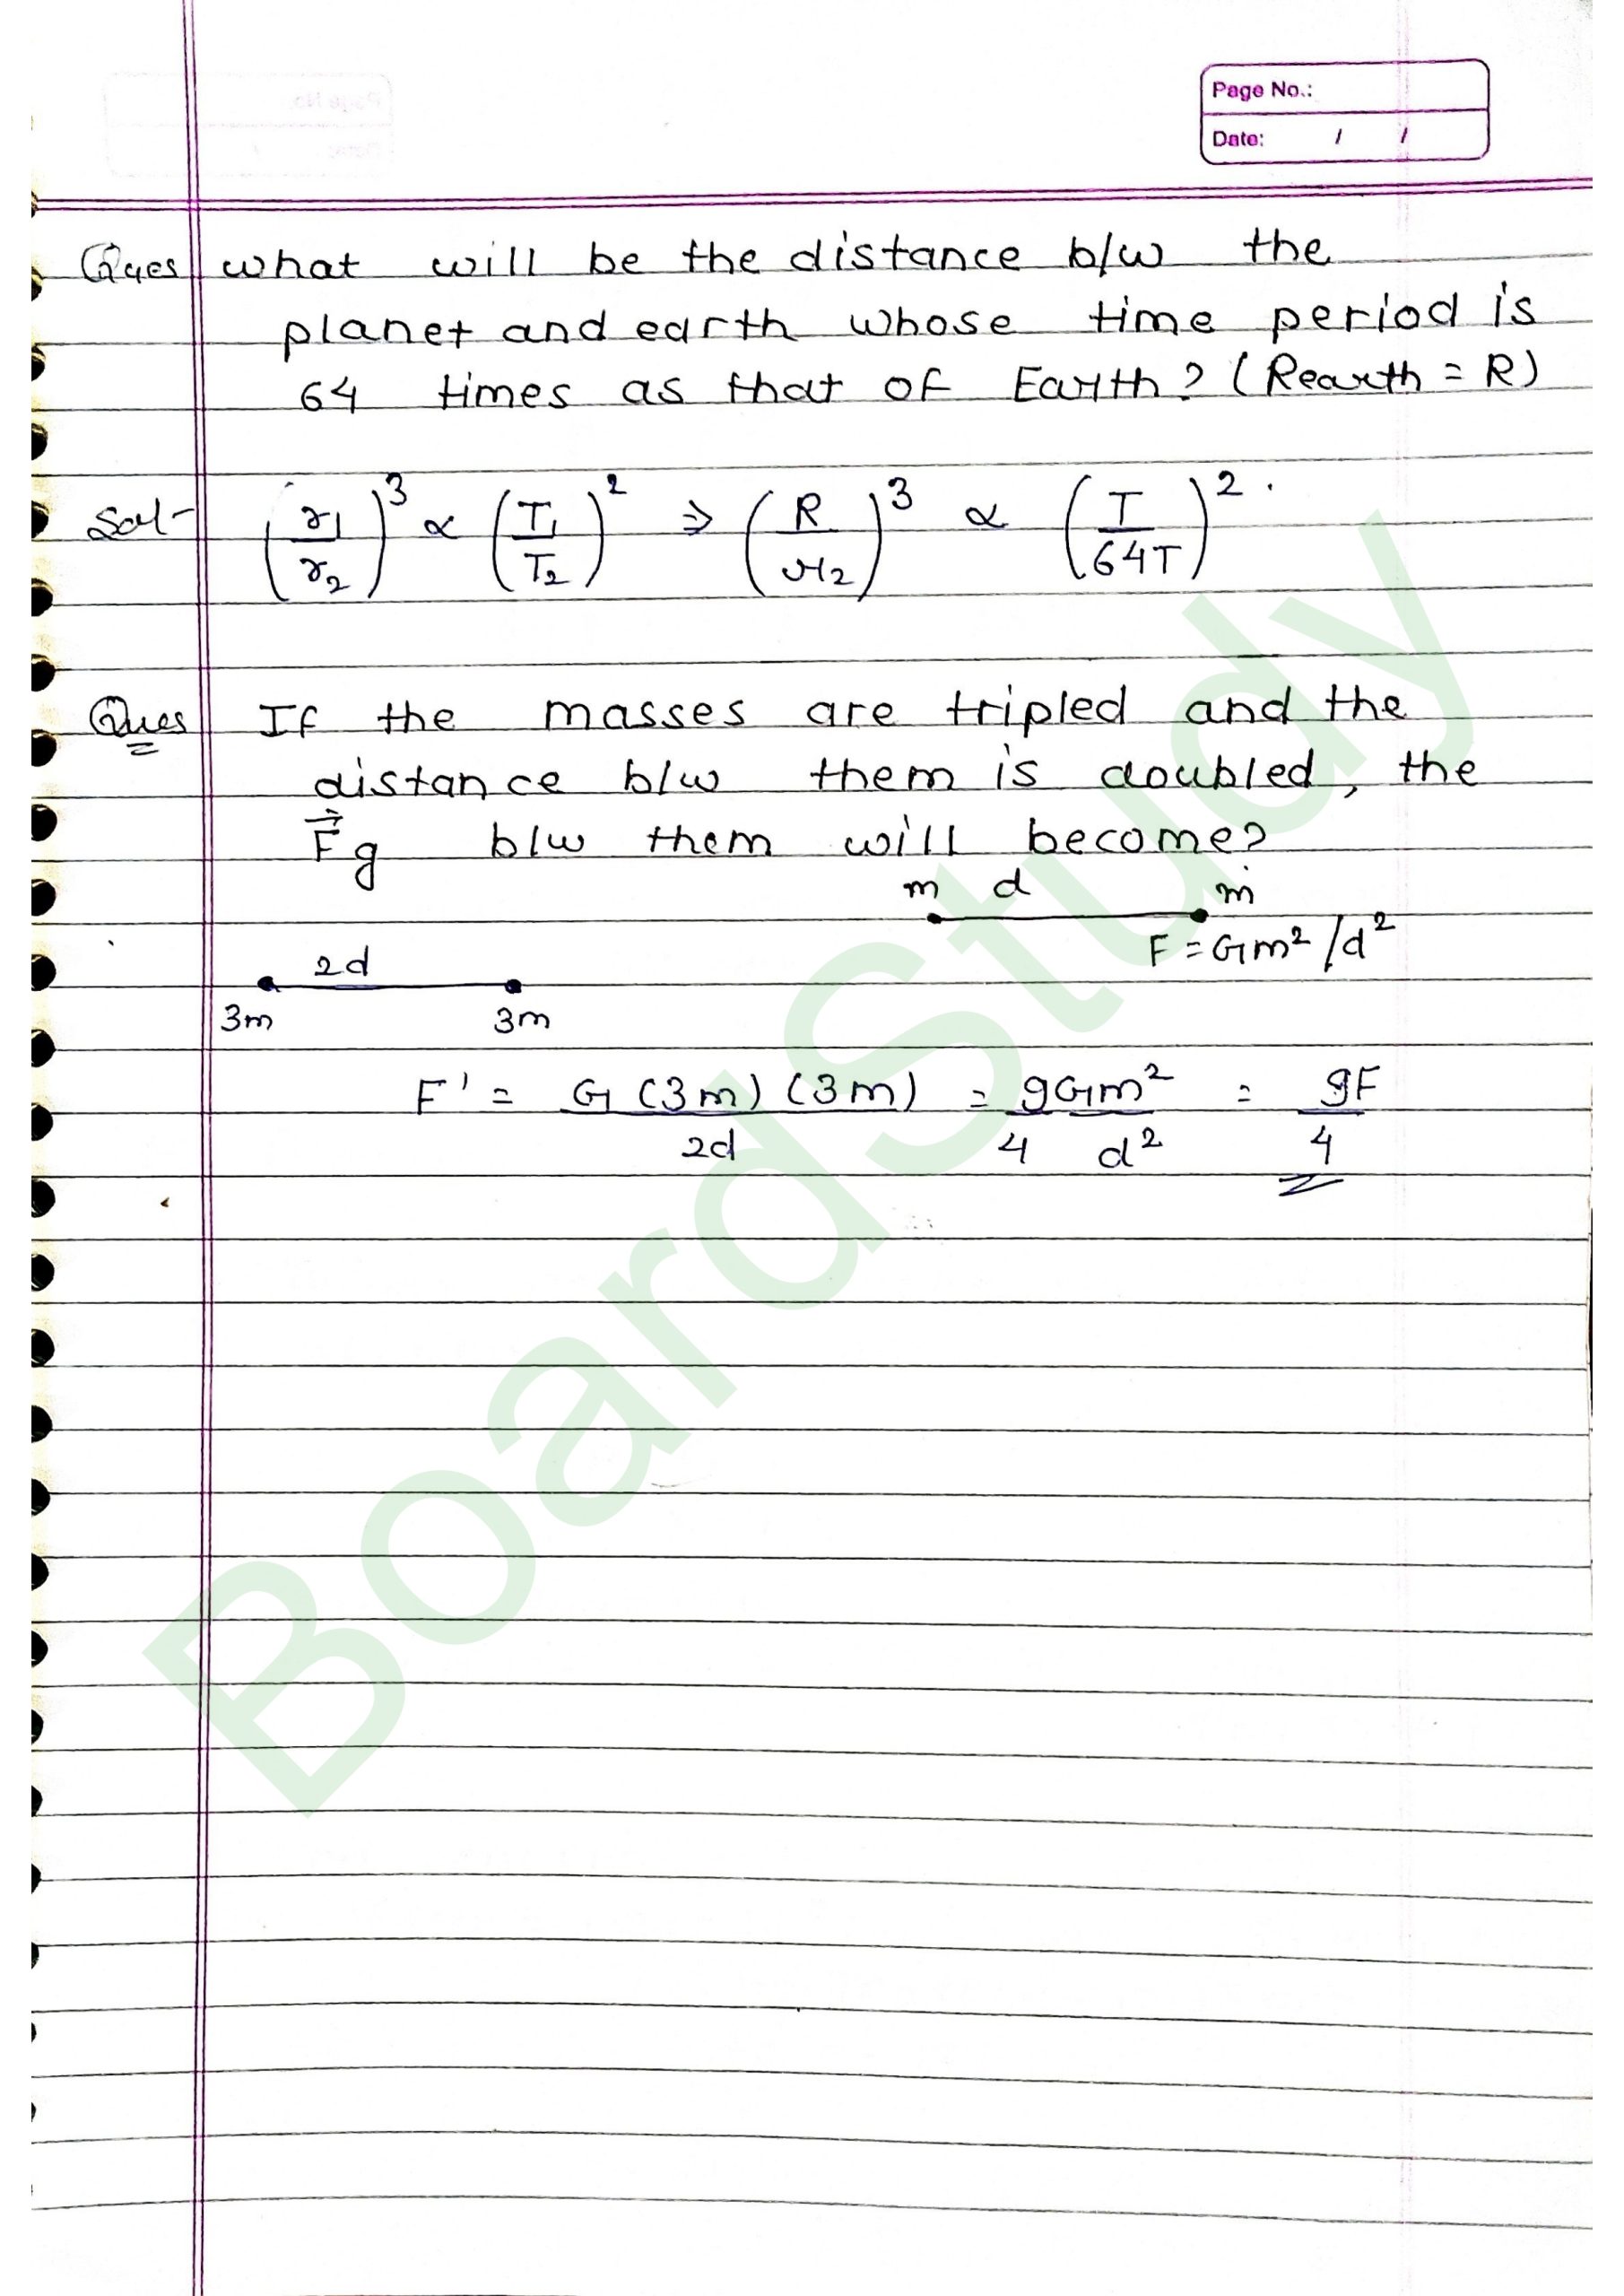 Page No.:
Date: / /
Ques what will be the distance b/w the
planet and earth whose time period is
64 times as that of Earth? (Rearth = R)
Sol- (r1/r2)^3 ∝ (T1/T2)^2 ⇒ (R/r2)^3 ∝ (T/64T)^2.
Ques If the masses are tripled and the
distance b/w them is doubled, the
F⃗g b/w them will become?
m d m
F = Gm²/d²
2d
3m 3m
F' = G(3m)(3m)/2d = 9Gm²/4 d² = 9F/4
BoardStudy